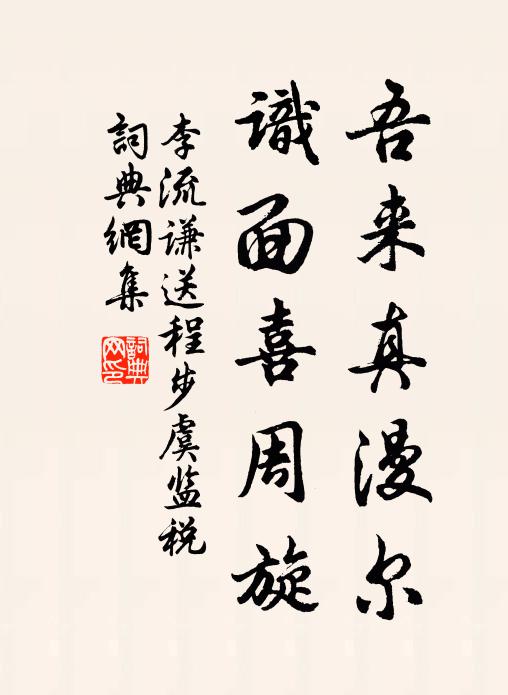 吾来真漫尔
識面喜周旋
李流谦送程步虞监税
詞典網集
詞典网印